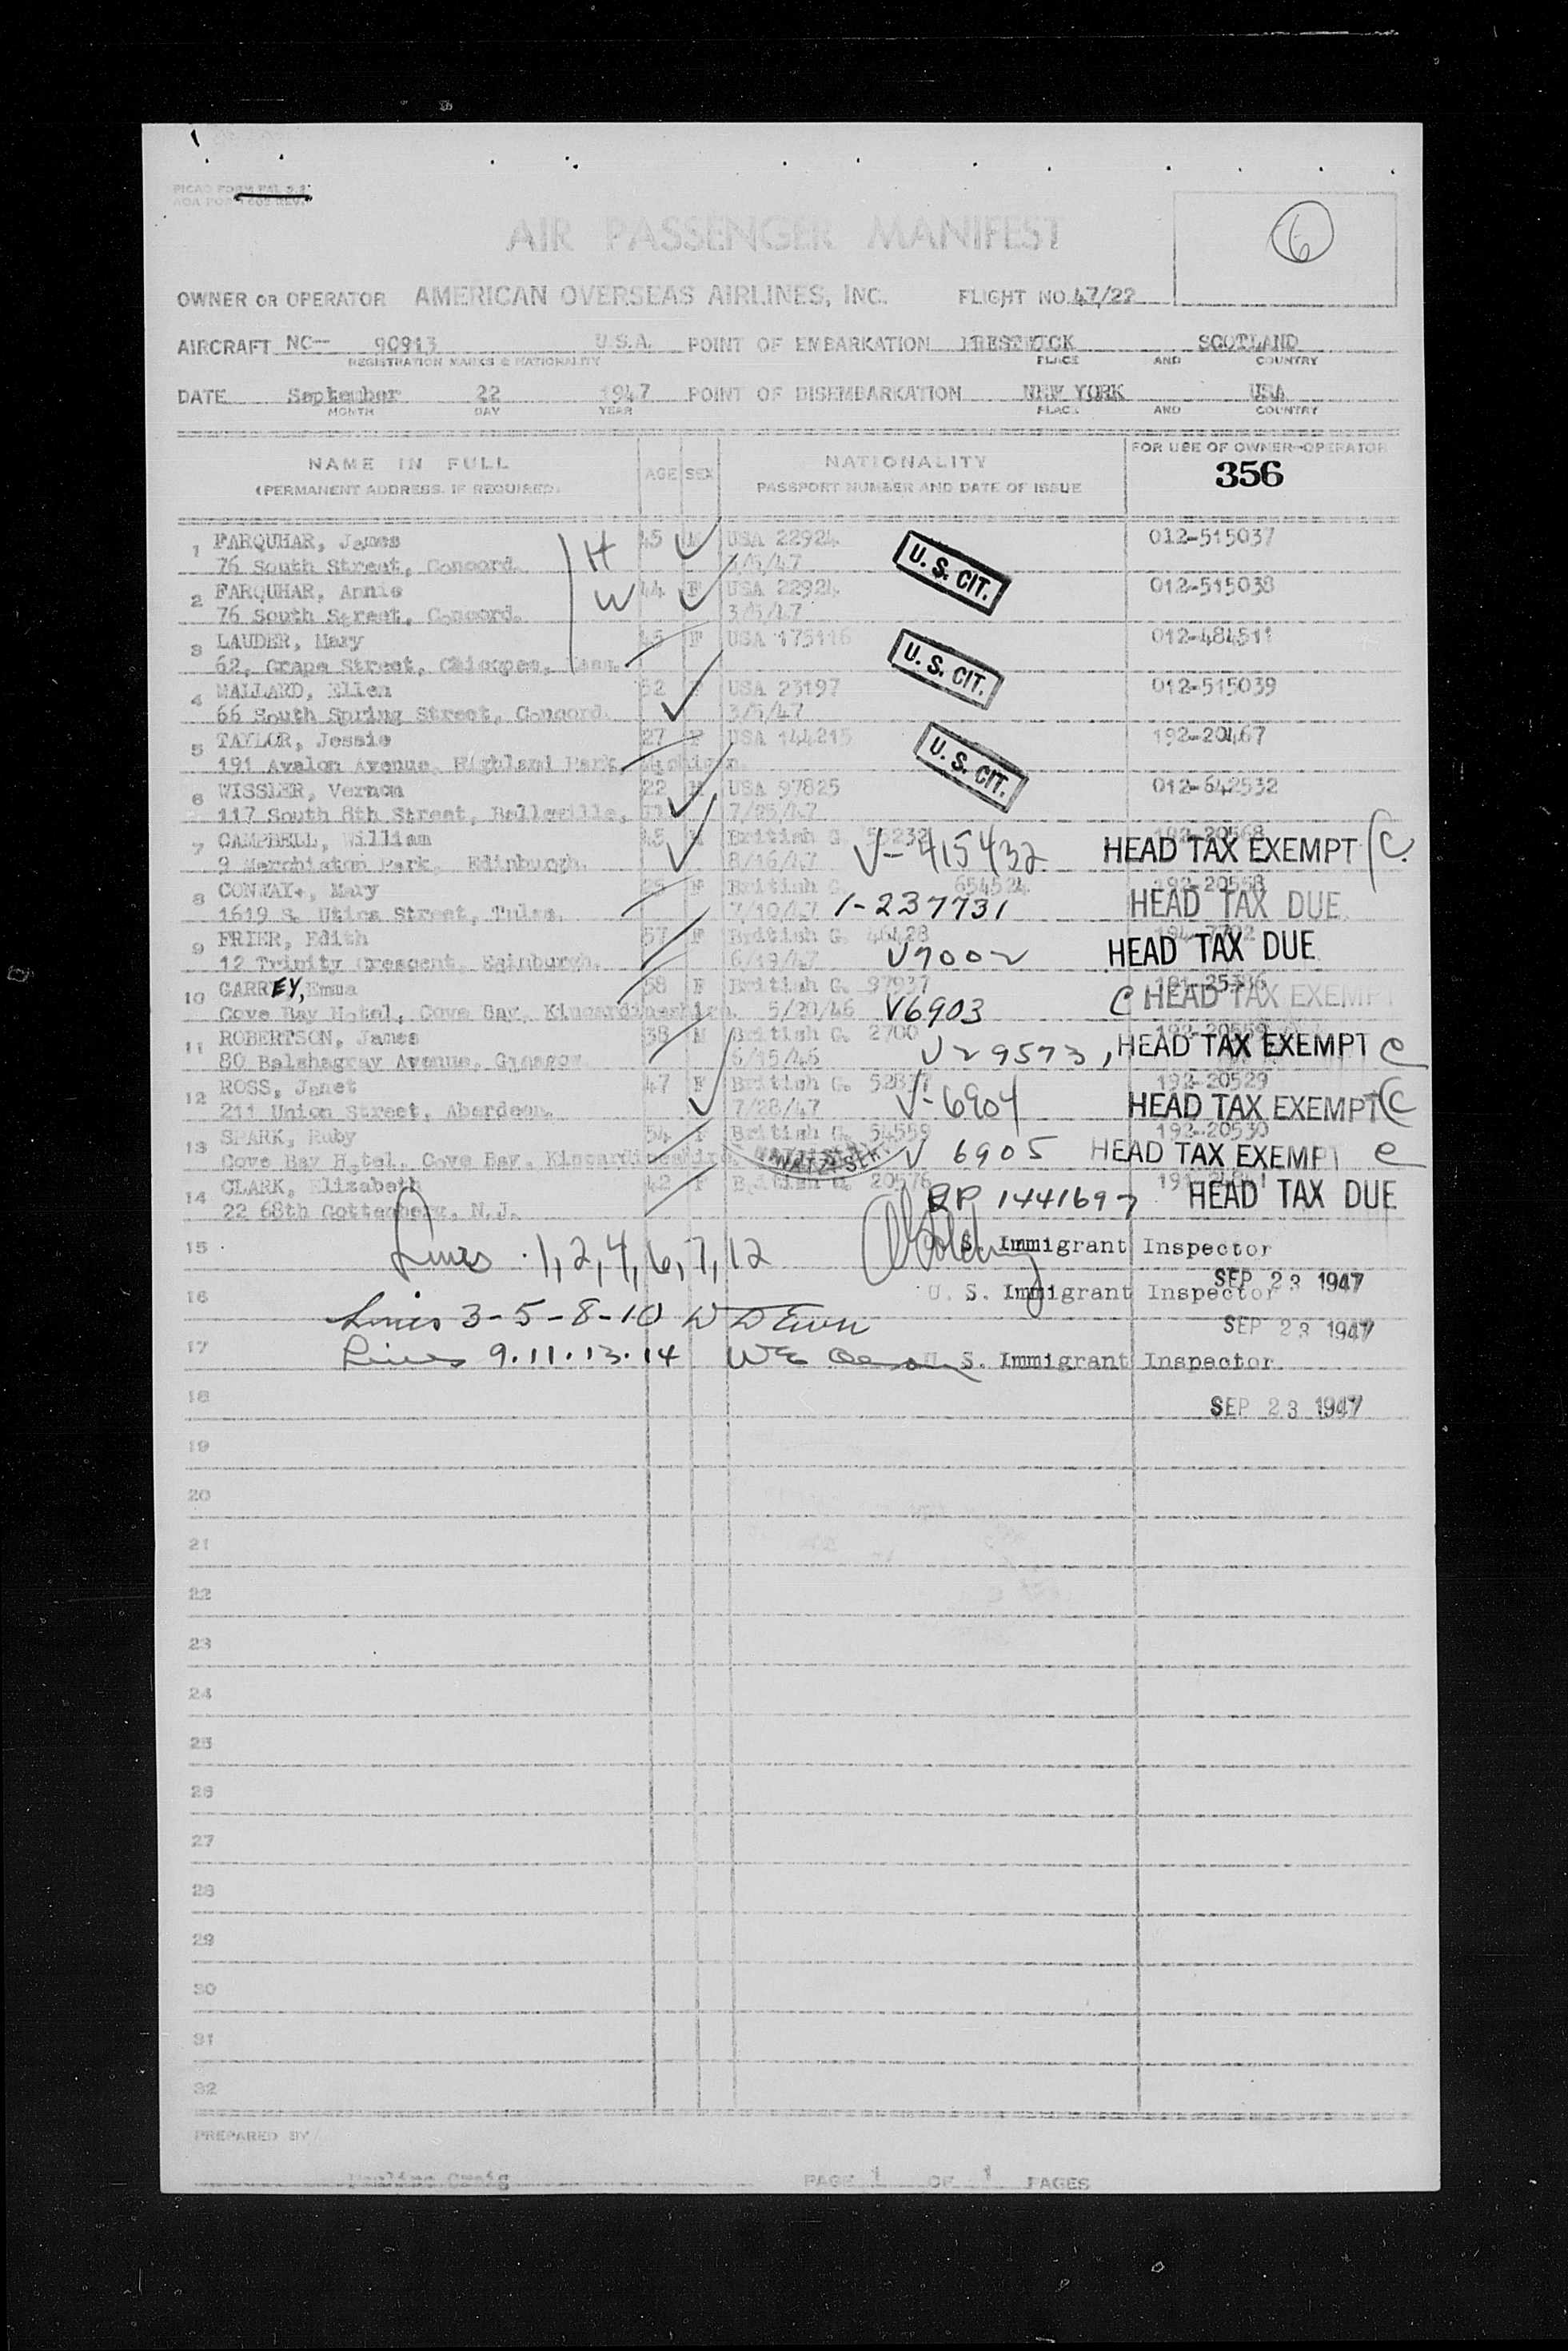 PICAO FORM PAL 9.2
AOA FORM 602 REV.
6
AIR PASSENGER MANIFEST
OWNER OR OPERATOR AMERICAN OVERSEAS AIRLINES, INC. FLIGHT NO. 47/22
AIRCRAFT NC— 90913 U.S.A. POINT OF EMBARKATION PRESTWICK SCOTLAND
REGISTRATION MARKS & NATIONALITY PLACE AND COUNTRY
DATE September 22 1947 POINT OF DISEMBARKATION NEW YORK USA
MONTH DAY YEAR PLACE AND COUNTRY
NAME IN FULL AGE SEX NATIONALITY FOR USE OF OWNER-OPERATOR
(PERMANENT ADDRESS, IF REQUIRED) PASSPORT NUMBER AND DATE OF ISSUE 356
1 FARQUHAR, James H 45 M USA 22924 012-515037
76 South Street, Concord. 3/5/47 U. S. CIT.
2 FARQUHAR, Annie W 44 F USA 22924 012-515038
76 South Street, Concord. 3/5/47
3 LAUDER, Mary 45 F USA 175116 012-484511
62, Grape Street, Chicopee, Mass. U. S. CIT.
4 MALLARD, Ellen 52 F USA 23197 012-515039
66 South Spring Street, Concord. 3/5/47
5 TAYLOR, Jessie 27 F USA 144215 192-20467
191 Avalon Avenue, Highland Park, Michigan. U. S. CIT.
6 WISSLER, Vernon 22 M USA 97825 012-642532
117 South 8th Street, Belleville, 7/25/47
7 CAMPBELL, William 45 M British G. 192-20568
9 Merchiston Park, Edinburgh. 8/16/47 V-415432 HEAD TAX EXEMPT C.
8 CONWAY, Mary F British G. 654524 192-20558
1619 S. Utica Street, Tulsa. 7/10/47 1-237731 HEAD TAX DUE
9 FRIER, Edith 57 F British G. 46428 194-7702
12 Trinity Crescent, Edinburgh. 6/19/47 V7002 HEAD TAX DUE
10 GARREY, Emma 58 F British G. 97937 191-25386
Cove Bay Hotel, Cove Bay, Kincardineshire. 5/20/46 V6903 C HEAD TAX EXEMPT
11 ROBERTSON, James 38 M British G. 2700 192-20559
80 Balshagray Avenue, Glasgow. 6/15/46 V29573, HEAD TAX EXEMPT C
12 ROSS, Janet 47 F British G. 52837 192-20529
211 Union Street, Aberdeen. 7/28/47 V-6904 HEAD TAX EXEMPT C
13 SPARK, Ruby 54 F British G. 54559 192-20530
Cove Bay Hotel, Cove Bay, Kincardineshire. V 6905 HEAD TAX EXEMPT C
14 CLARK, Elizabeth 42 F British G. 20576
22 68th Guttenberg, N.J. RP 1441697 HEAD TAX DUE
15 Lines 1, 2, 4, 6, 7, 12 U. S. Immigrant Inspector
SEP 23 1947
16 U. S. Immigrant Inspector
Lines 3-5-8-10 SEP 23 1947
17 Lines 9.11.13.14 U. S. Immigrant Inspector
18 SEP 23 1947
19
20
21
22
23
24
25
26
27
28
29
30
31
32
PREPARED BY
Pauline Craig PAGE 1 OF 1 PAGES